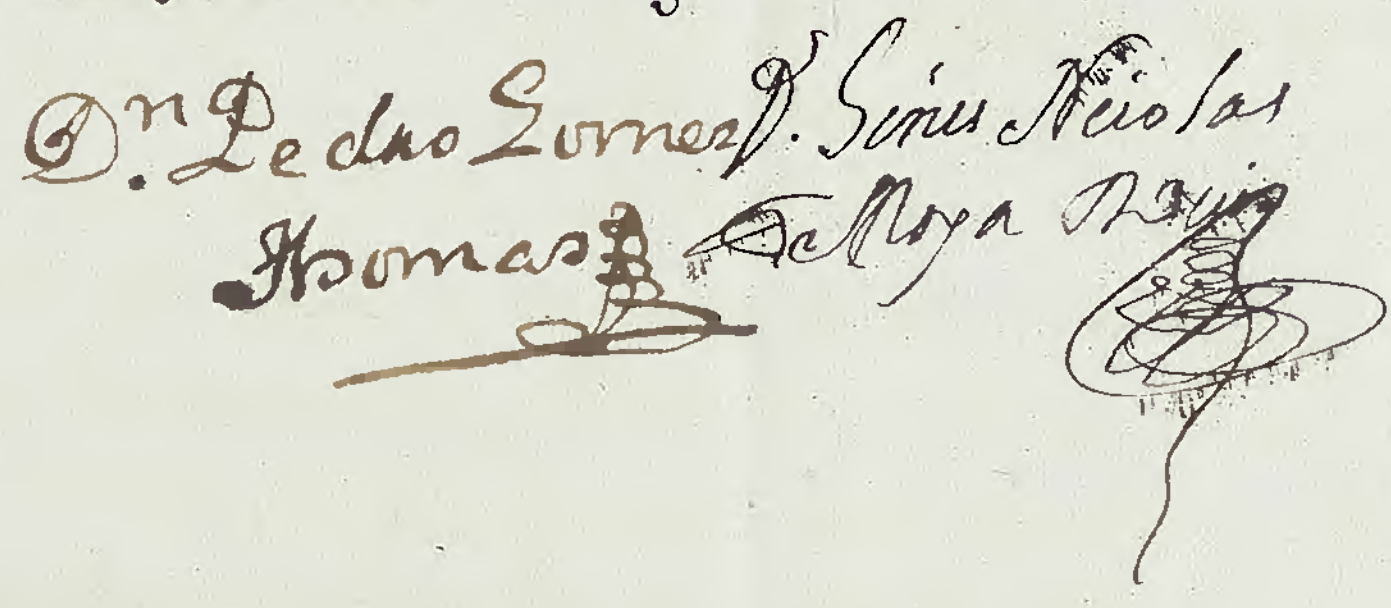 Dn. Pedro Gomez
Thomas
D. Gines Nicolas
de Moya